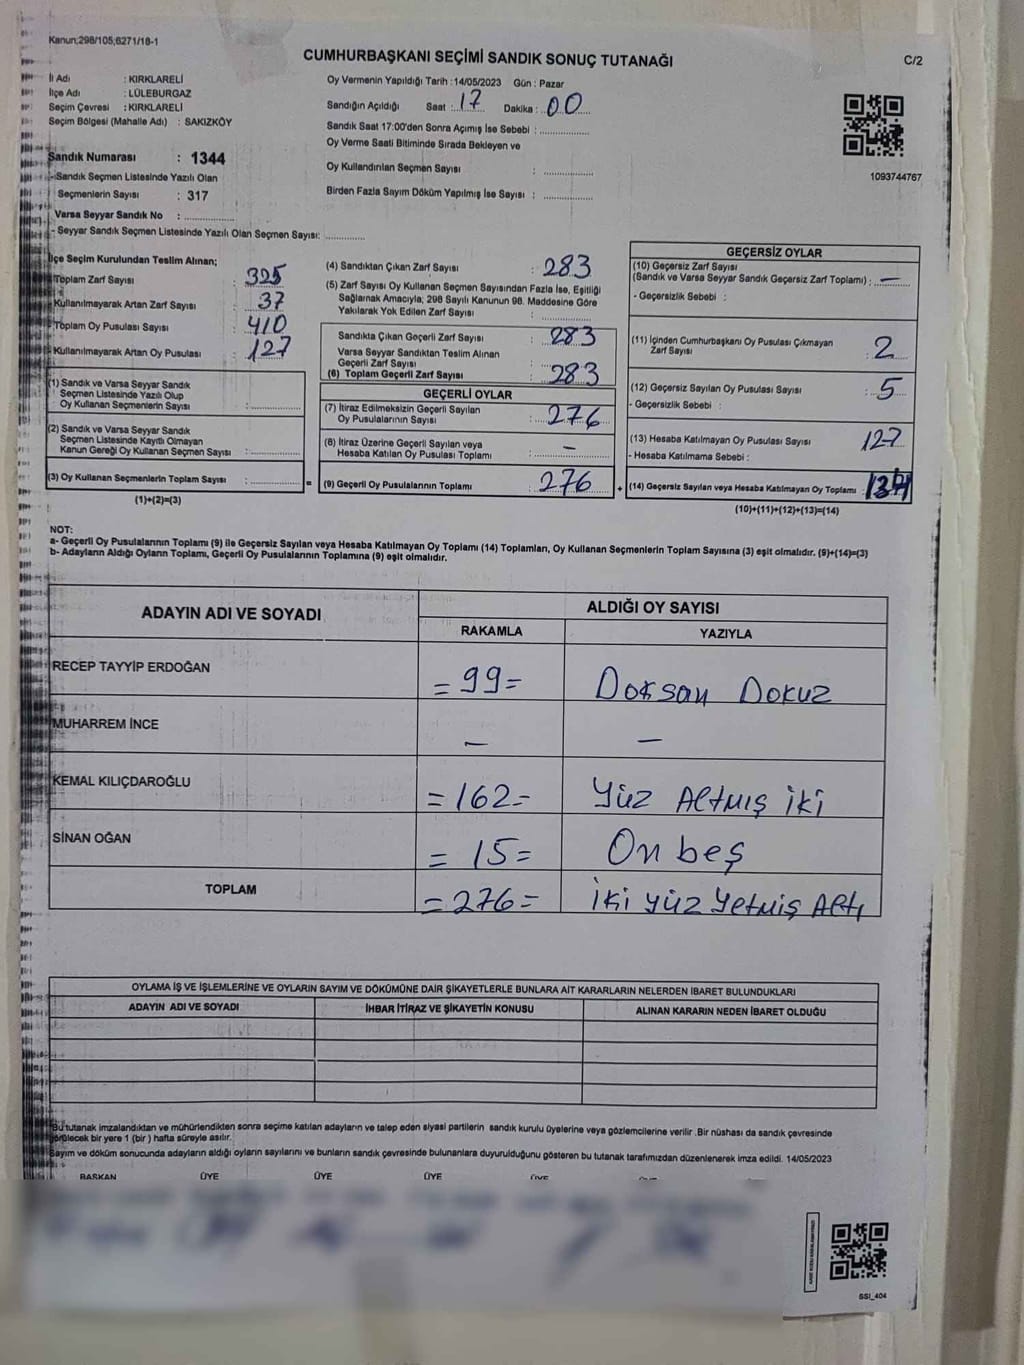 Kanun;298/105;6271/18-1
CUMHURBAŞKANI SEÇİMİ SANDIK SONUÇ TUTANAĞI
C/2
İl Adı : KIRKLARELİ
İlçe Adı : LÜLEBURGAZ
Seçim Çevresi : KIRKLARELİ
Seçim Bölgesi (Mahalle Adı) : SAKIZKÖY
Sandık Numarası : 1344
- Sandık Seçmen Listesinde Yazılı Olan
Seçmenlerin Sayısı : 317
Varsa Seyyar Sandık No : ................
- Seyyar Sandık Seçmen Listesinde Yazılı Olan Seçmen Sayısı: ............
Oy Vermenin Yapıldığı Tarih : 14/05/2023 Gün : Pazar
Sandığın Açıldığı Saat : 17 Dakika : 00
Sandık Saat 17:00'den Sonra Açımış İse Sebebi : ................
Oy Verme Saati Bitiminde Sırada Bekleyen ve
Oy Kullandırılan Seçmen Sayısı : ................
Birden Fazla Sayım Döküm Yapılmış İse Sayısı : ................
1093744767
İlçe Seçim Kurulundan Teslim Alınan;
Toplam Zarf Sayısı : 325
Kullanılmayarak Artan Zarf Sayısı : 37
Toplam Oy Pusulası Sayısı : 410
Kullanılmayarak Artan Oy Pusulası : 127
(1) Sandık ve Varsa Seyyar Sandık
Seçmen Listesinde Yazılı Olup
Oy Kullanan Seçmenlerin Sayısı : ................
(2) Sandık ve Varsa Seyyar Sandık
Seçmen Listesinde Kayıtlı Olmayan
Kanun Gereği Oy Kullanan Seçmen Sayısı : ................
(3) Oy Kullanan Seçmenlerin Toplam Sayısı : ................
(1)+(2)=(3)
(4) Sandıktan Çıkan Zarf Sayısı : 283
(5) Zarf Sayısı Oy Kullanan Seçmen Sayısından Fazla İse, Eşitliği
Sağlamak Amacıyla; 298 Sayılı Kanunun 98. Maddesine Göre
Yakılarak Yok Edilen Zarf Sayısı : ................
Sandıkta Çıkan Geçerli Zarf Sayısı : 283
Varsa Seyyar Sandıktan Teslim Alınan
Geçerli Zarf Sayısı :
(6) Toplam Geçerli Zarf Sayısı : 283
GEÇERLİ OYLAR
(7) İtiraz Edilmeksizin Geçerli Sayılan
Oy Pusulalarının Sayısı : 276
(8) İtiraz Üzerine Geçerli Sayılan veya
Hesaba Katılan Oy Pusulası Toplamı : —
= (9) Geçerli Oy Pusulalarının Toplamı : 276
GEÇERSİZ OYLAR
(10) Geçersiz Zarf Sayısı
(Sandık ve Varsa Seyyar Sandık Geçersiz Zarf Toplamı) : —
- Geçersizlik Sebebi :
(11) İçinden Cumhurbaşkanı Oy Pusulası Çıkmayan
Zarf Sayısı : 2
(12) Geçersiz Sayılan Oy Pusulası Sayısı : 5
- Geçersizlik Sebebi :
(13) Hesaba Katılmayan Oy Pusulası Sayısı 127
- Hesaba Katılmama Sebebi :
+ (14) Geçersiz Sayılan veya Hesaba Katılmayan Oy Toplamı : 134
(10)+(11)+(12)+(13)=(14)
NOT:
a- Geçerli Oy Pusulalarının Toplamı (9) ile Geçersiz Sayılan veya Hesaba Katılmayan Oy Toplamı (14) Toplamları, Oy Kullanan Seçmenlerin Toplam Sayısına (3) eşit olmalıdır. (9)+(14)=(3)
b- Adayların Aldığı Oyların Toplamı, Geçerli Oy Pusulalarının Toplamına (9) eşit olmalıdır.
ADAYIN ADI VE SOYADI
ALDIĞI OY SAYISI
RAKAMLA YAZIYLA
RECEP TAYYİP ERDOĞAN = 99 = Doksan Dokuz
MUHARREM İNCE — —
KEMAL KILIÇDAROĞLU = 162 = Yüz Altmış iki
SİNAN OĞAN = 15 = On beş
TOPLAM = 276 = İki yüz yetmiş Altı
OYLAMA İŞ VE İŞLEMLERİNE VE OYLARIN SAYIM VE DÖKÜMÜNE DAİR ŞİKAYETLERLE BUNLARA AİT KARARLARIN NELERDEN İBARET BULUNDUKLARI
ADAYIN ADI VE SOYADI İHBAR İTİRAZ VE ŞİKAYETİN KONUSU ALINAN KARARIN NEDEN İBARET OLDUĞU
Bu tutanak imzalandıktan ve mühürlendikten sonra seçime katılan adayların ve talep eden siyasi partilerin sandık kurulu üyelerine veya gözlemcilerine verilir .Bir nüshası da sandık çevresinde
görülecek bir yere 1 (bir ) hafta süreyle asılır.
Sayım ve döküm sonucunda adayların aldığı oyların sayılarını ve bunların sandık çevresinde bulunanlara duyurulduğunu gösteren bu tutanak tarafımızdan düzenlenerek imza edildi. 14/05/2023
BAŞKAN ÜYE ÜYE ÜYE ÜYE
SSI_404